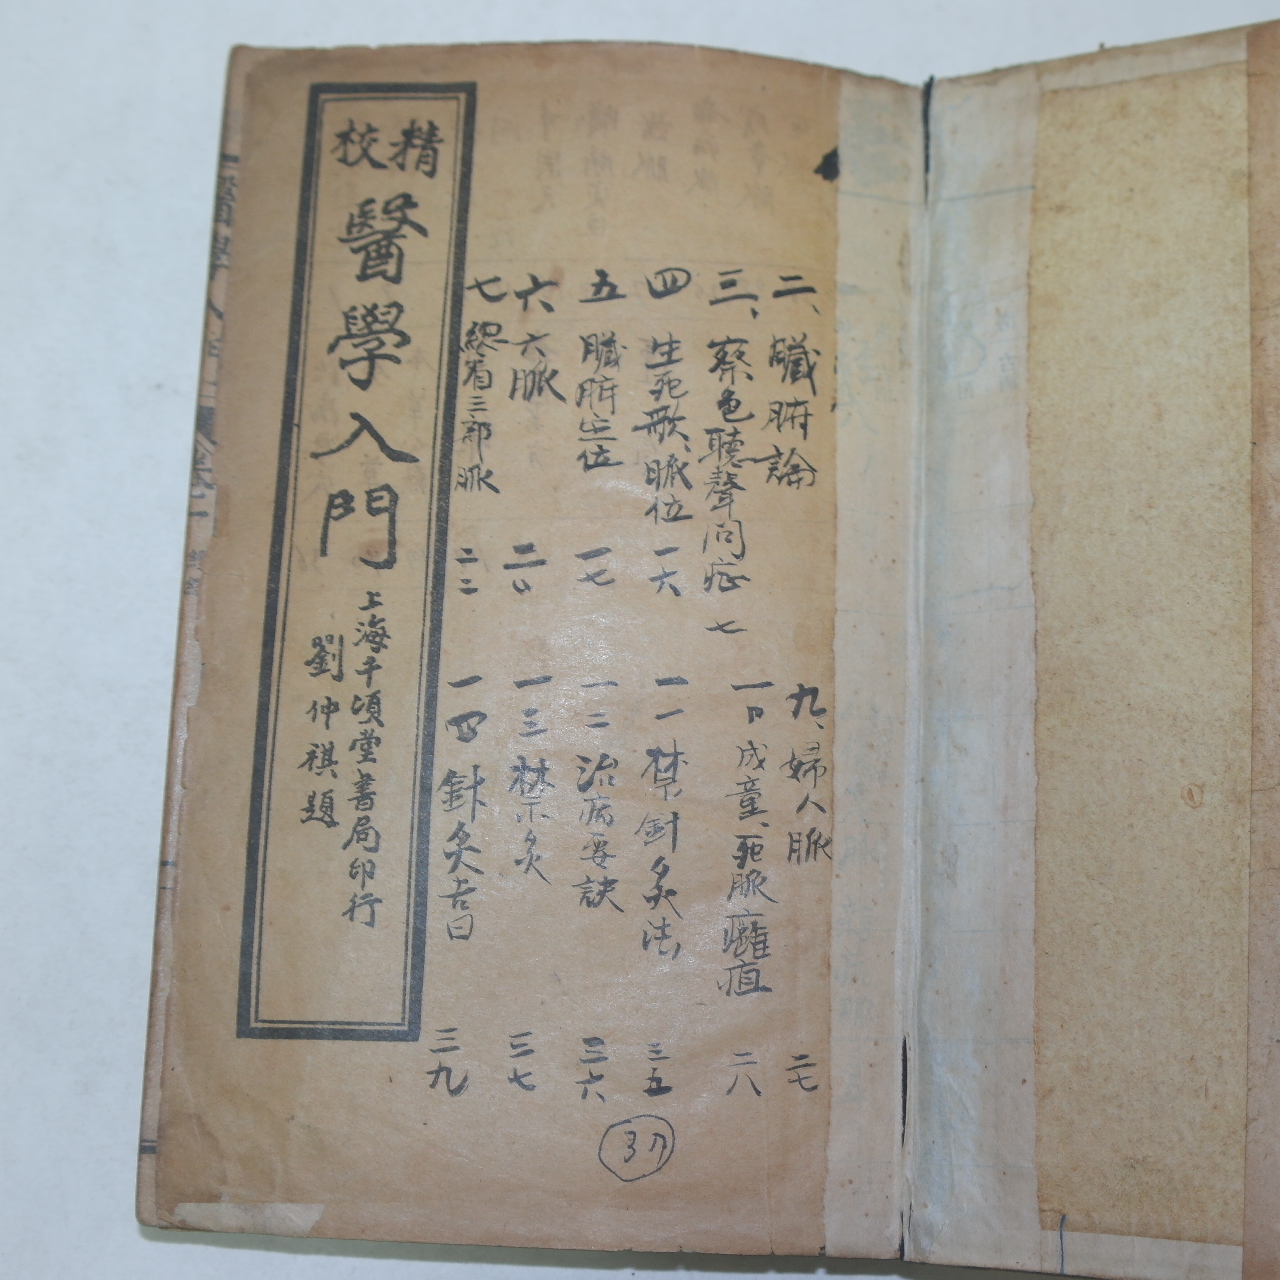 二、臟腑論
三、察色聽聲問症 七
四 生死形、脈位 一六
五 臟腑定位 一七
六、六脈 二〇
七 總看三部脈 二二
九、婦人脈 二七
一〇 成童、死脈癰疽 二八
一一 禁針灸法 三五
一二 治病要訣 三六
一三 禁灸 三七
一四 針灸吉日 三九
精校
醫學入門
上海千頃堂書局印行
劉仲祺題